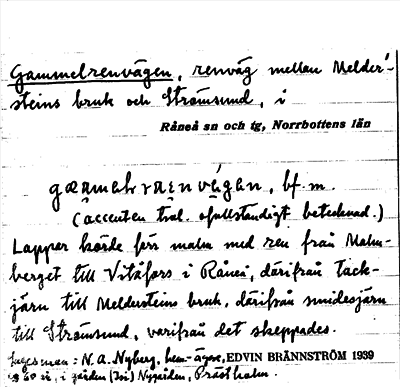 Gammelrenvägen, renväg mellan Melder-
steins bruk och Strömsund, i
Råneå sn och tg, Norrbottens län
gœmelrænvégen, bf. m.
(accenten trol. ofullständigt betecknad.)
Lappar körde förr malm med ren från Malm-
berget till Vitåfors i Råneå, därifrån tack-
järn till Meldersteins bruk, därifrån smidesjärn
till Strömsund, varifrån det skeppades.
Sagesman: N. A. Nyberg, hem.-ägare, EDVIN BRÄNNSTRÖM 1939
i gården Nygården, Prästholm.